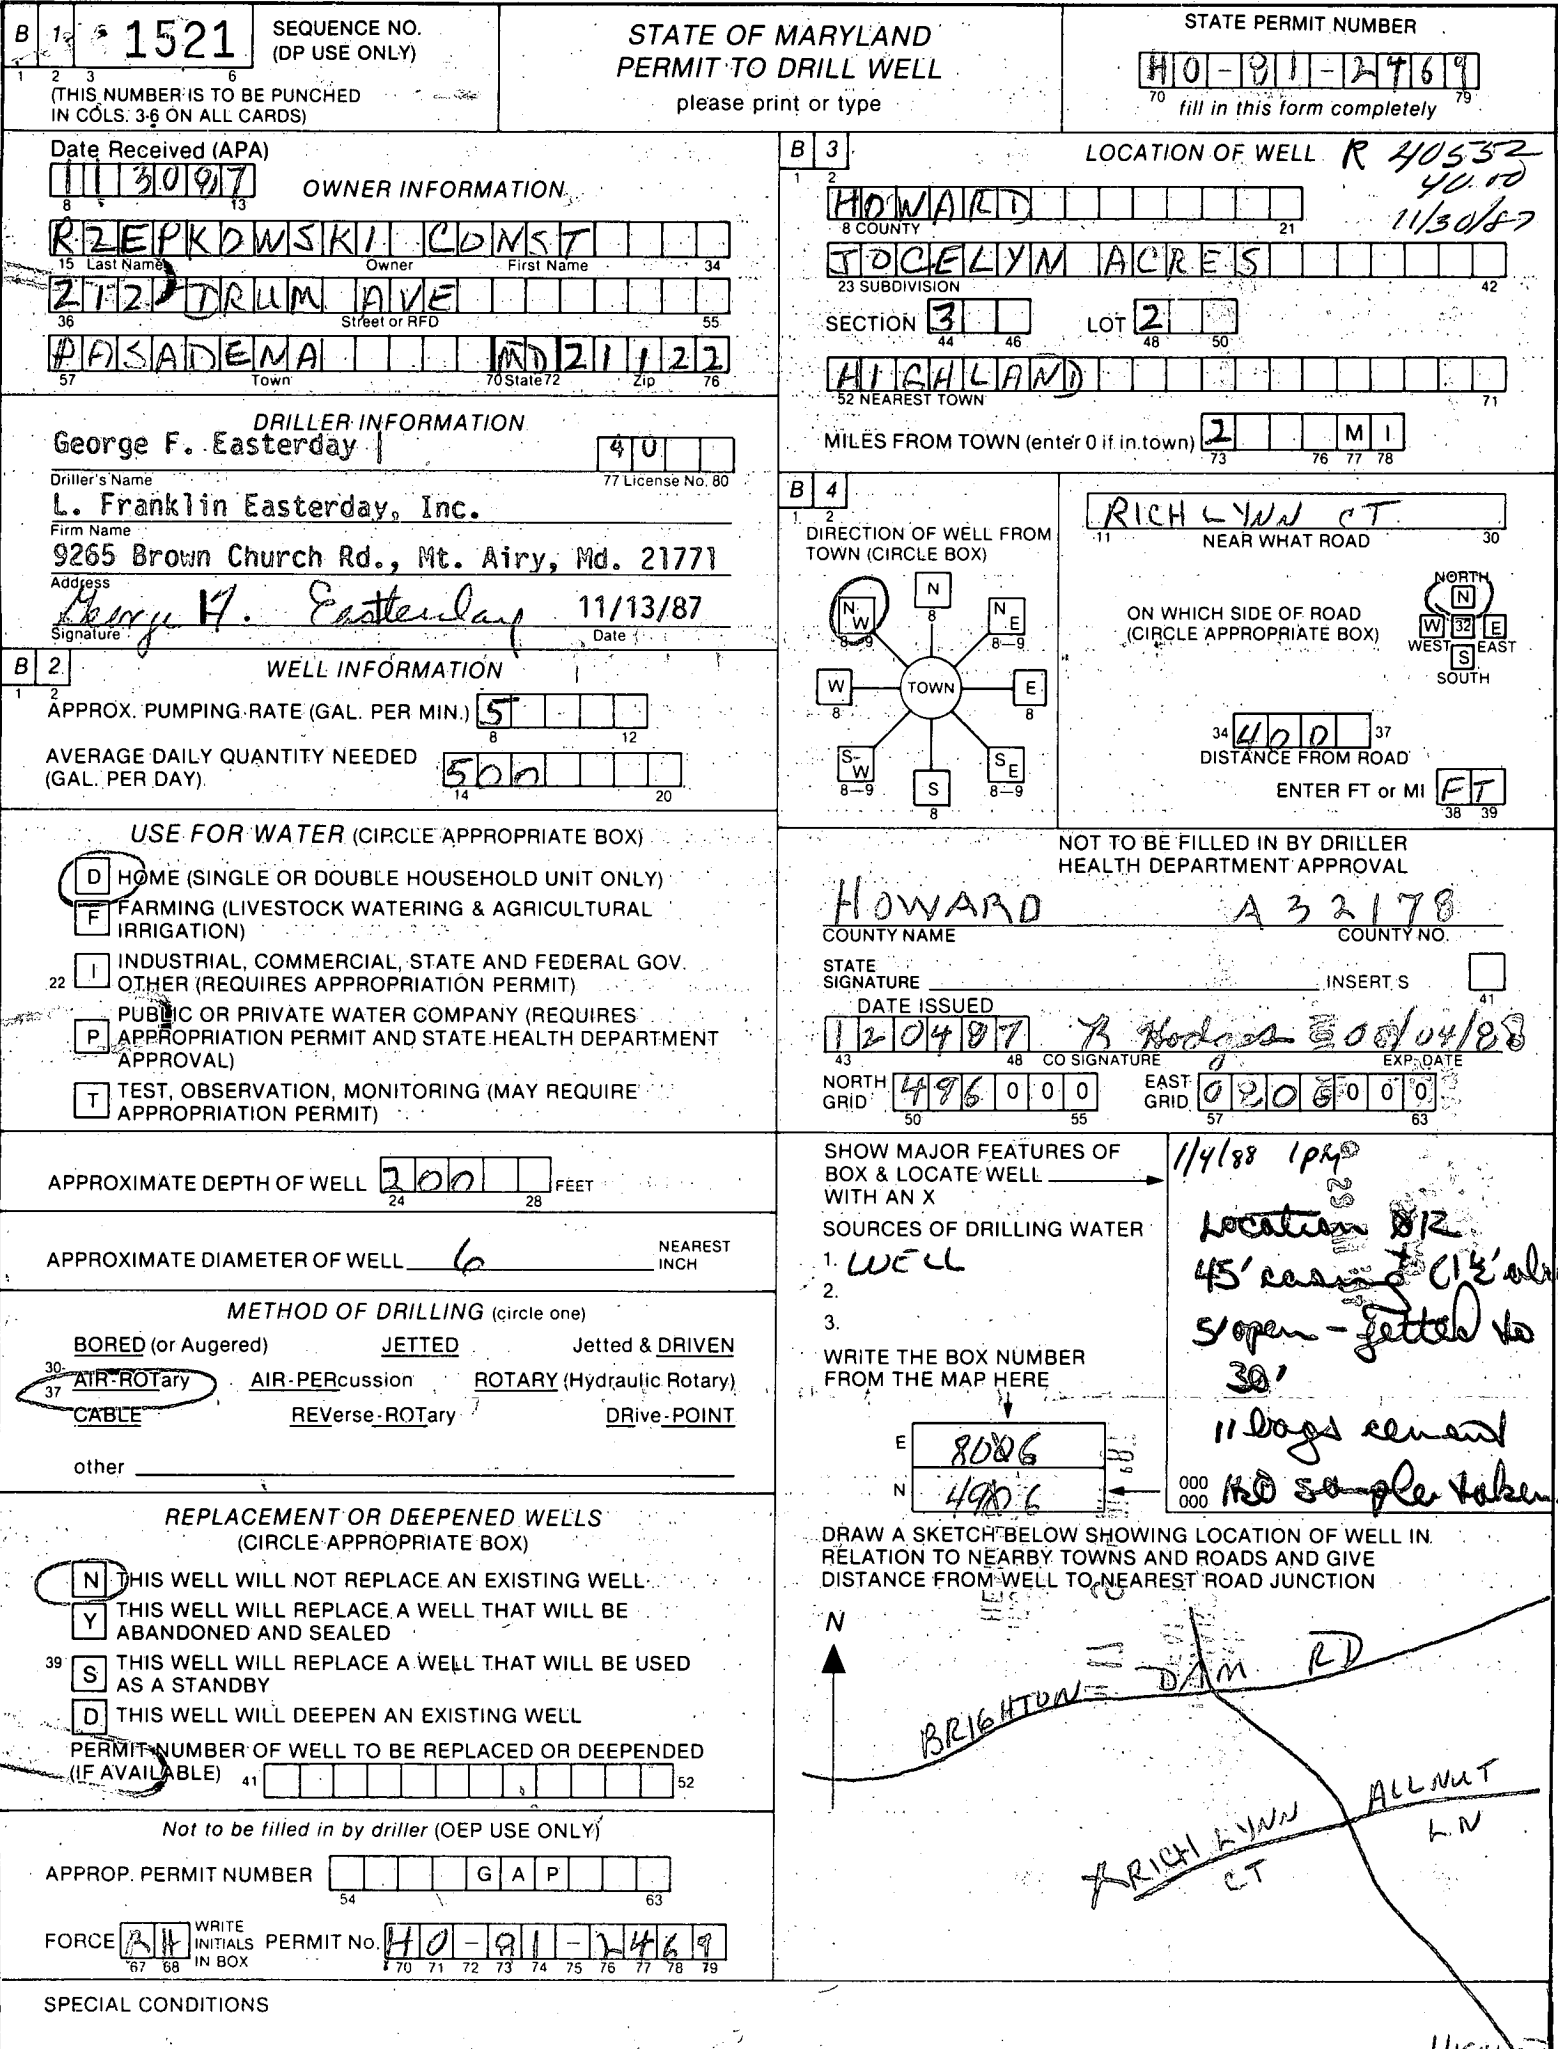 B 1 1521 SEQUENCE NO. (DP USE ONLY)
1 2 3 6
(THIS NUMBER IS TO BE PUNCHED
IN COLS. 3-6 ON ALL CARDS)
STATE OF MARYLAND
PERMIT TO DRILL WELL
please print or type
STATE PERMIT NUMBER
HO-81-2469
70 79
fill in this form completely
Date Received (APA)
113087
8 13
OWNER INFORMATION
RZEPKOWSKI CONST
15 Last Name Owner First Name 34
212 DRUM AVE
36 Street or RFD 55
PASADENA MD 21122
57 Town 70 State 72 Zip 76
DRILLER INFORMATION
George F. Easterday 40
Driller's Name 77 License No. 80
L. Franklin Easterday, Inc.
Firm Name
9265 Brown Church Rd., Mt. Airy, Md. 21771
Address
Easterday 11/13/87
Signature Date
B 2 WELL INFORMATION
1 2
APPROX. PUMPING RATE (GAL. PER MIN.) 5
8 12
AVERAGE DAILY QUANTITY NEEDED
(GAL. PER DAY) 500
14 20
USE FOR WATER (CIRCLE APPROPRIATE BOX)
D HOME (SINGLE OR DOUBLE HOUSEHOLD UNIT ONLY)
F FARMING (LIVESTOCK WATERING & AGRICULTURAL
IRRIGATION)
22 I INDUSTRIAL, COMMERCIAL, STATE AND FEDERAL GOV.
OTHER (REQUIRES APPROPRIATION PERMIT)
P PUBLIC OR PRIVATE WATER COMPANY (REQUIRES
APPROPRIATION PERMIT AND STATE HEALTH DEPARTMENT
APPROVAL)
T TEST, OBSERVATION, MONITORING (MAY REQUIRE
APPROPRIATION PERMIT)
APPROXIMATE DEPTH OF WELL 200 FEET
24 28
APPROXIMATE DIAMETER OF WELL 6 NEAREST
INCH
METHOD OF DRILLING (circle one)
BORED (or Augered) JETTED Jetted & DRIVEN
30-37 AIR-ROTary AIR-PERcussion ROTARY (Hydraulic Rotary)
CABLE REVerse-ROTary DRive-POINT
other
REPLACEMENT OR DEEPENED WELLS
(CIRCLE APPROPRIATE BOX)
N THIS WELL WILL NOT REPLACE AN EXISTING WELL
Y THIS WELL WILL REPLACE A WELL THAT WILL BE
ABANDONED AND SEALED
39 S THIS WELL WILL REPLACE A WELL THAT WILL BE USED
AS A STANDBY
D THIS WELL WILL DEEPEN AN EXISTING WELL
PERMIT NUMBER OF WELL TO BE REPLACED OR DEEPENDED
(IF AVAILABLE) 41 52
Not to be filled in by driller (OEP USE ONLY)
APPROP. PERMIT NUMBER GAP
54 63
FORCE RH WRITE INITIALS IN BOX PERMIT No. HO-81-2469
67 68 70 71 72 73 74 75 76 77 78 79
SPECIAL CONDITIONS
B 3 LOCATION OF WELL R 40532
1 2 40.00
HOWARD 11/30/87
8 COUNTY 21
JOCELYN ACRES
23 SUBDIVISION 42
SECTION 3 LOT 2
44 46 48 50
HIGHLAND
52 NEAREST TOWN 71
MILES FROM TOWN (enter 0 if in town) 2 MI
73 76 77 78
B 4
1 2
DIRECTION OF WELL FROM
TOWN (CIRCLE BOX)
N 8
NW 8-9
NE 8-9
W 8
TOWN
E 8
SW 8-9
SE 8-9
S 8
RICH LYNN CT
11 NEAR WHAT ROAD 30
ON WHICH SIDE OF ROAD
(CIRCLE APPROPRIATE BOX)
NORTH
N
W 32 E
WEST EAST
S
SOUTH
34 400 37
DISTANCE FROM ROAD
ENTER FT or MI FT
38 39
NOT TO BE FILLED IN BY DRILLER
HEALTH DEPARTMENT APPROVAL
HOWARD A 32178
COUNTY NAME COUNTY NO.
STATE
SIGNATURE INSERT S
41
DATE ISSUED
120487 R Hodges 04/88
43 48 CO SIGNATURE EXP. DATE
NORTH GRID 496000 EAST GRID
50 55 57 63
SHOW MAJOR FEATURES OF
BOX & LOCATE WELL
WITH AN X
SOURCES OF DRILLING WATER
1. WELL
2.
3.
WRITE THE BOX NUMBER
FROM THE MAP HERE
E
N
000
000
1/4/88 1PM
Location OK
45' casing
5' open - jetted to
30'
11 bags cement
H2O sample taken
DRAW A SKETCH BELOW SHOWING LOCATION OF WELL IN
RELATION TO NEARBY TOWNS AND ROADS AND GIVE
DISTANCE FROM WELL TO NEAREST ROAD JUNCTION
N
BRIGHTON DAM RD
ALLNUT
LN
X RICH LYNN
CT